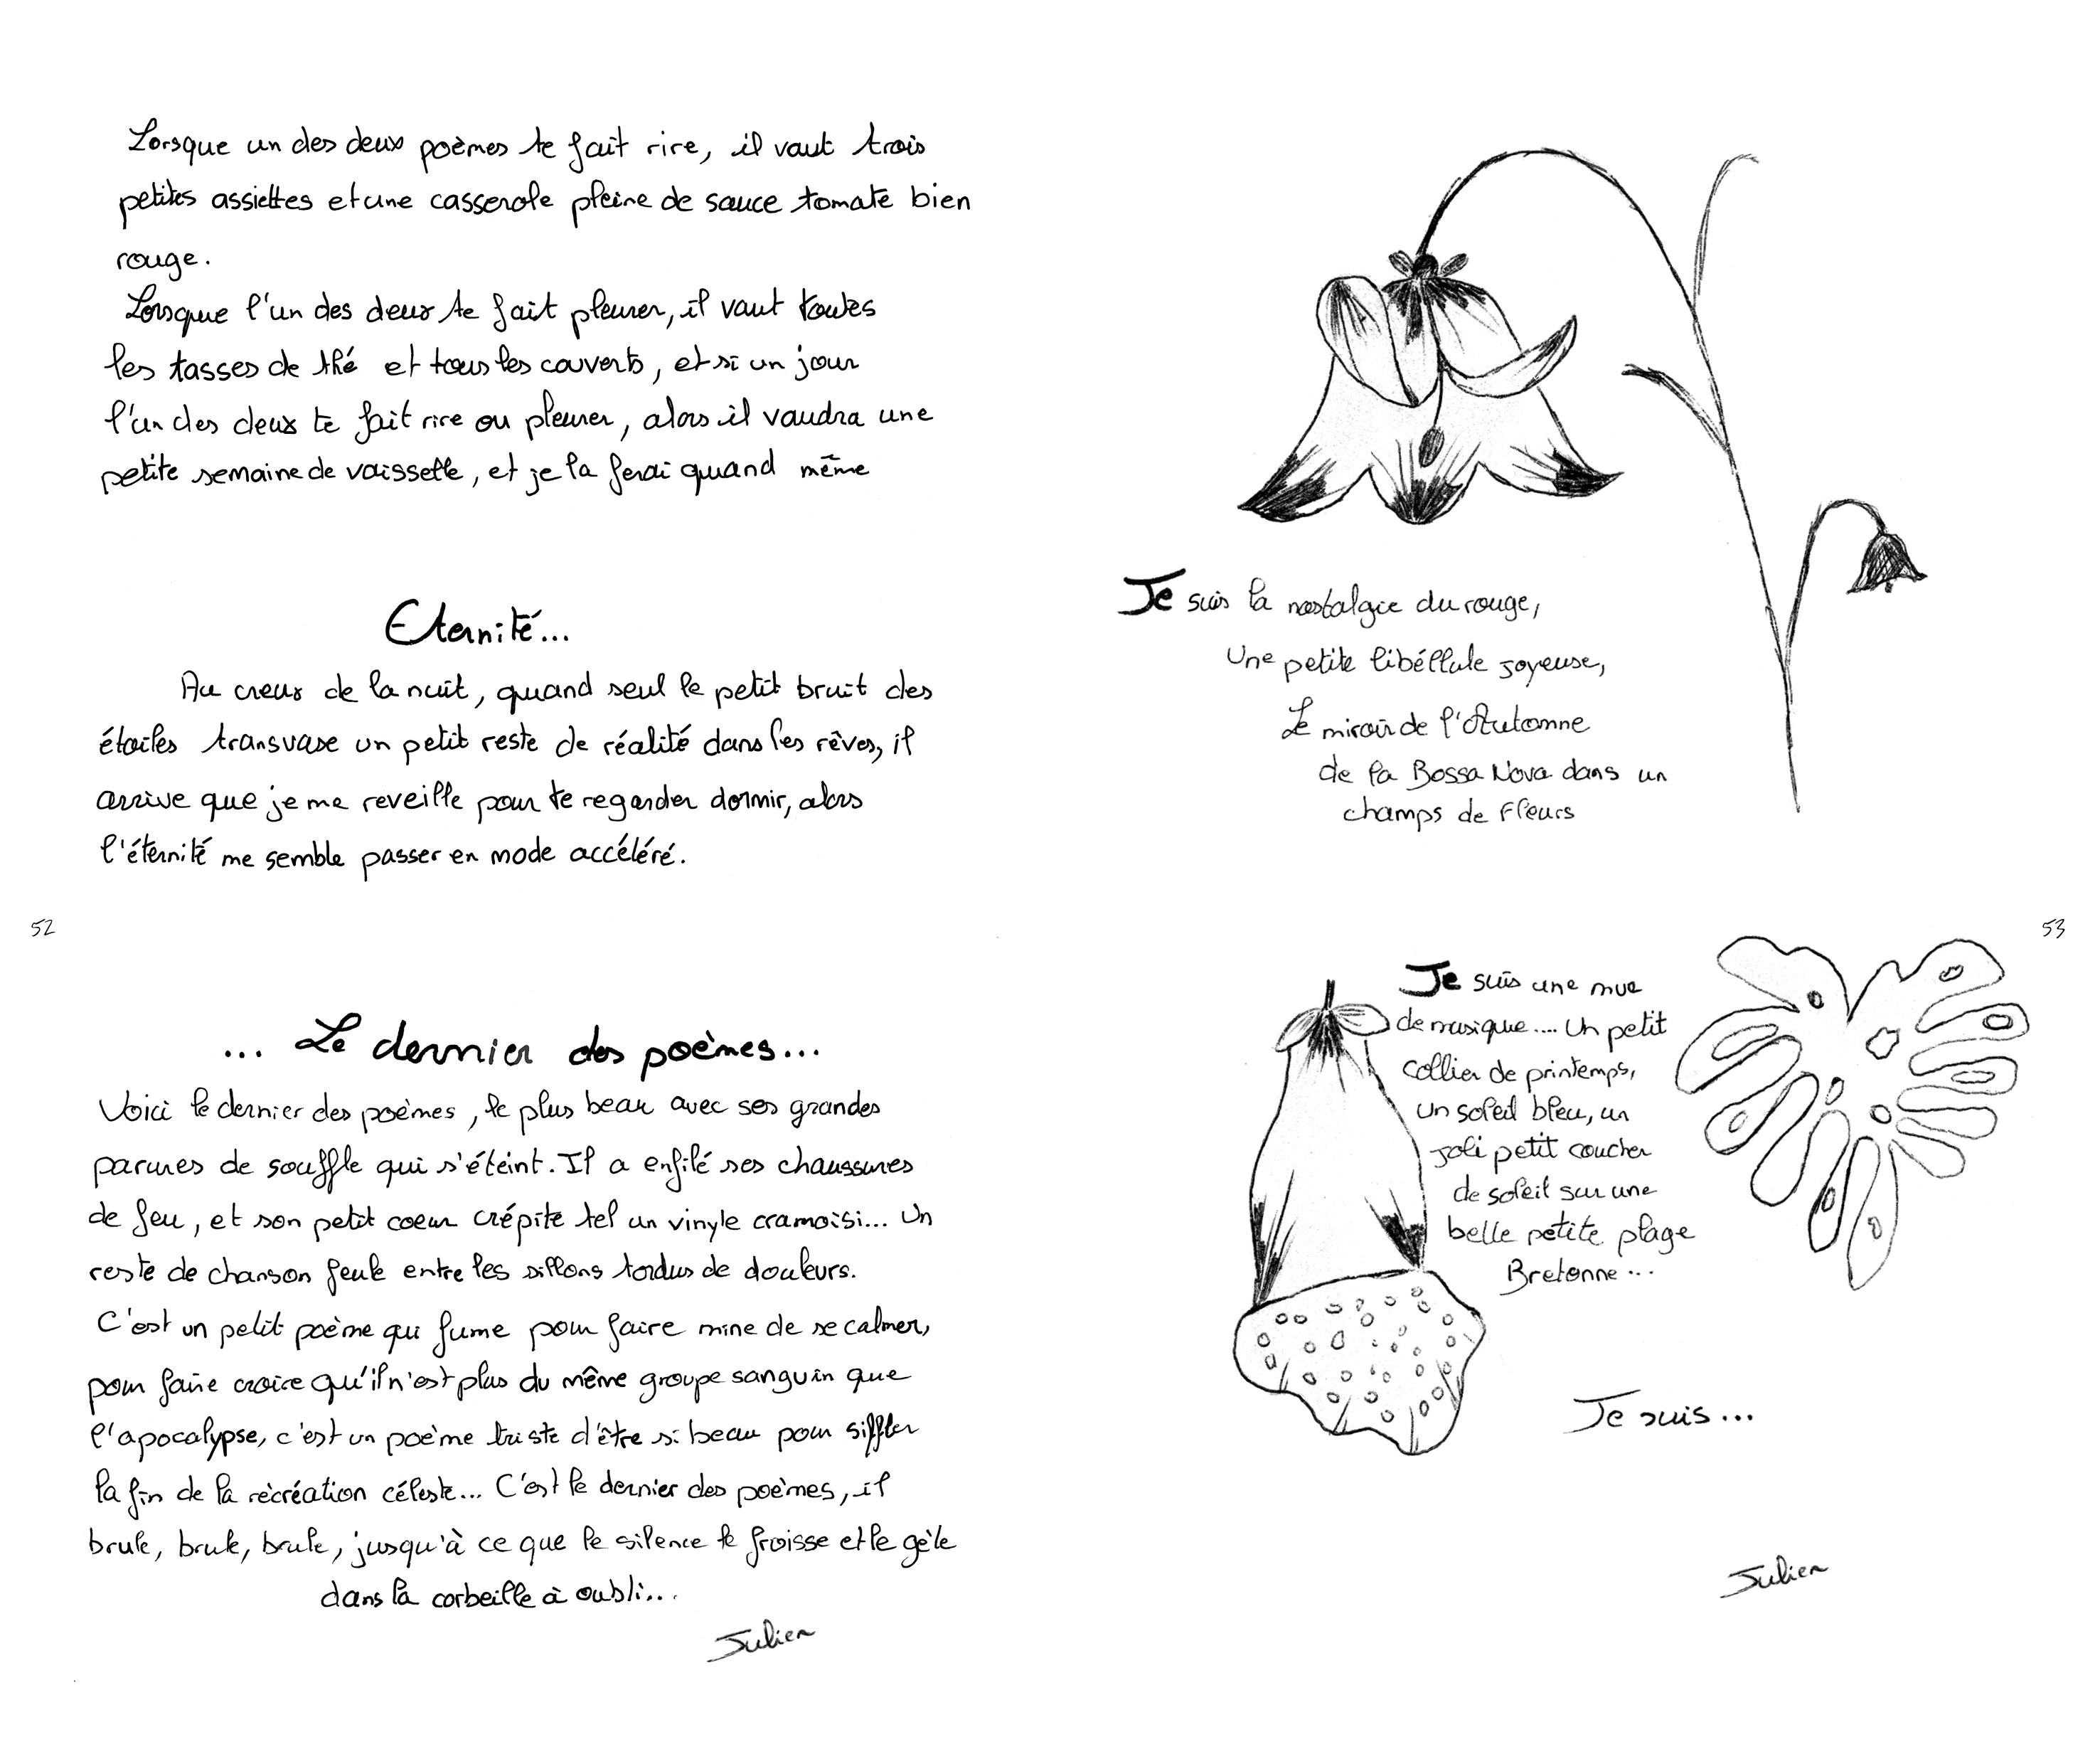 Lorsque un des deux poèmes te fait rire, il vaut trois
petites assiettes et une casserole pleine de sauce tomate bien
rouge.
Lorsque l'un des deux te fait pleurer, il vaut toutes
les tasses de thé et tous les couverts, et si un jour
l'un des deux te fait rire ou pleurer, alors il vaudra une
petite semaine de vaisselle, et je la ferai quand même
Eternité...
Au creux de la nuit, quand seul le petit bruit des
étoiles transvase un petit reste de réalité dans les rêves, il
arrive que je me reveille pour te regarder dormir, alors
l'éternité me semble passer en mode accéléré.
52
... Le dernier des poèmes...
Voici le dernier des poèmes, le plus beau avec ses grandes
parures de souffle qui s'éteint. Il a enfilé ses chaussures
de feu, et son petit coeur crépite tel un vinyle cramoisi... Un
reste de chanson feule entre les sillons tordus de douleurs.
C'est un petit poème qui fume pour faire mine de se calmer,
pour faire croire qu'il n'est plus du même groupe sanguin que
l'apocalypse, c'est un poème triste d'être si beau pour siffler
la fin de la récréation céleste... C'est le dernier des poèmes, il
brule, brule, brule, jusqu'à ce que le silence le froisse et le gèle
dans la corbeille à oubli...
Julien
Je suis la nostalgie du rouge,
Une petite libéllule joyeuse,
Le miroir de l'Automne
de la Bossa Nova dans un
champs de Fleurs
53
Je suis une mue
de musique.... Un petit
collier de printemps,
un soleil bleu, un
joli petit coucher
de soleil sur une
belle petite plage
Bretonne...
Je suis...
Julien